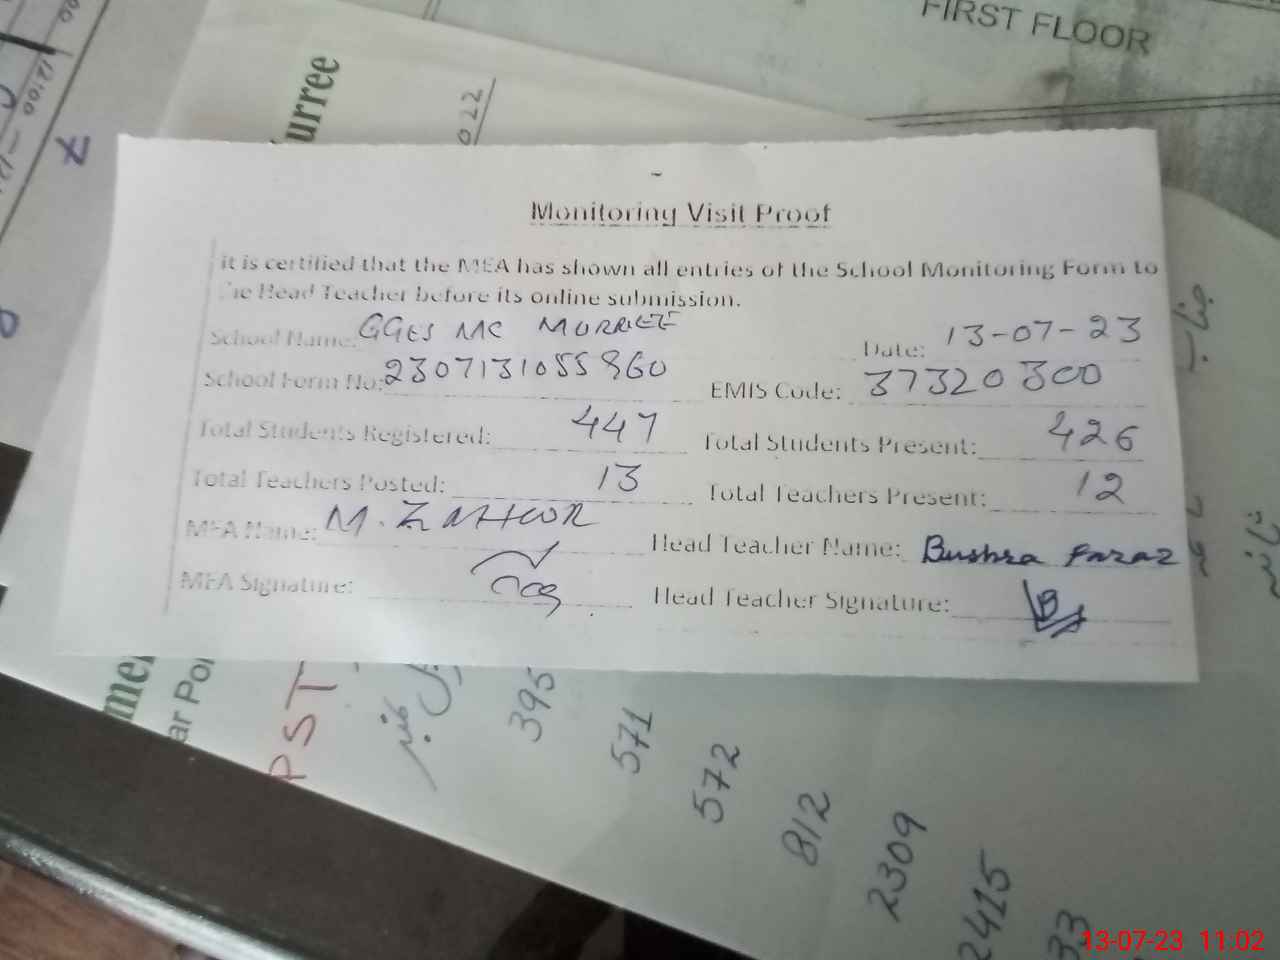 FIRST FLOOR
urree
022
Monitoring Visit Proof
it is certified that the MEA has shown all entries of the School Monitoring Form to
the Head Teacher before its online submission.
School Name: GGES MC MURREE Date: 13-07-23
School Form No: 2307131055860 EMIS Code: 37320300
Total Students Registered: 447 Total Students Present: 426
Total Teachers Posted: 13 Total Teachers Present: 12
MEA Name: M. ZAHOOR Head Teacher Name: Bushra Faraz
MEA Signature: Head Teacher Signature:
PST
395
571
572
812
2309
2415
33
13-07-23 11:02